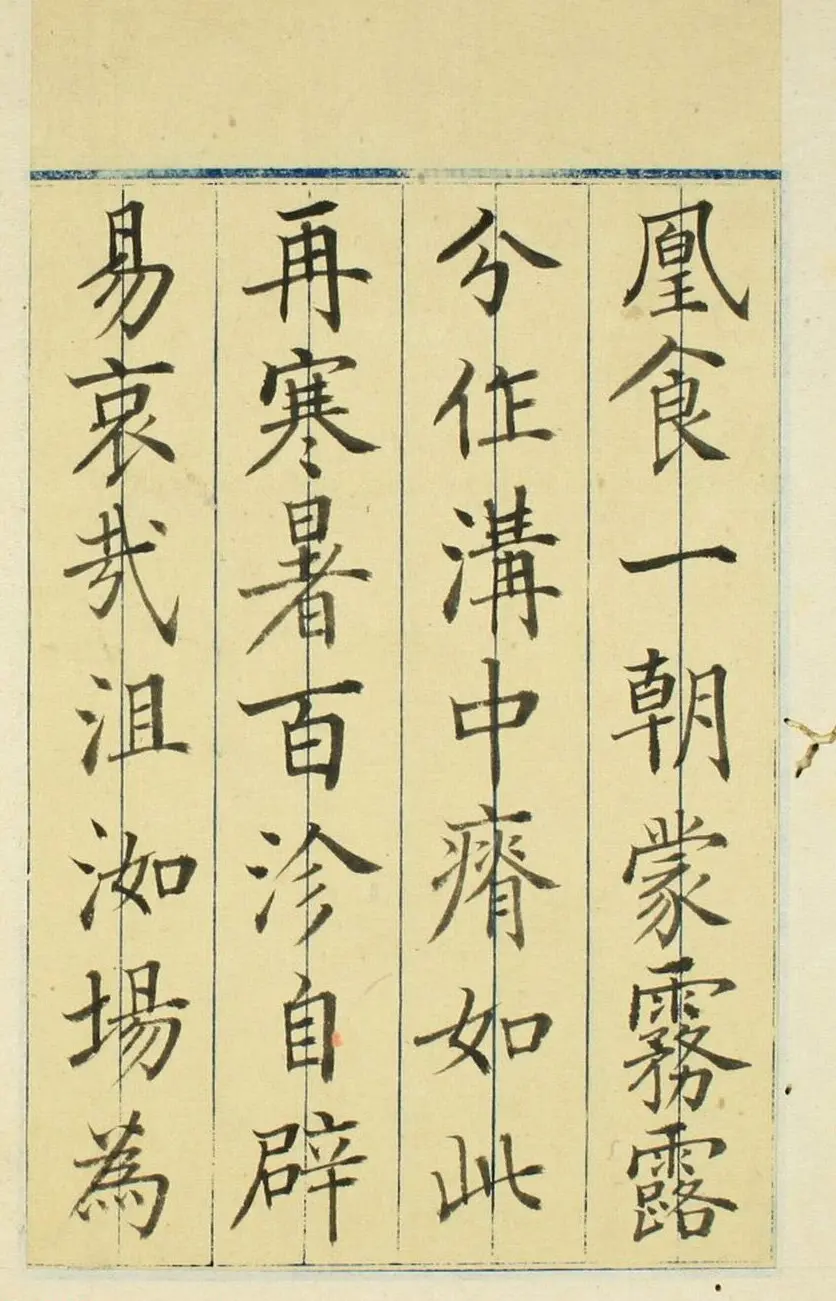 凰食一朝蒙霧露
分作溝中瘠如此
再寒暑百沴自辟
易哀哉沮洳場為